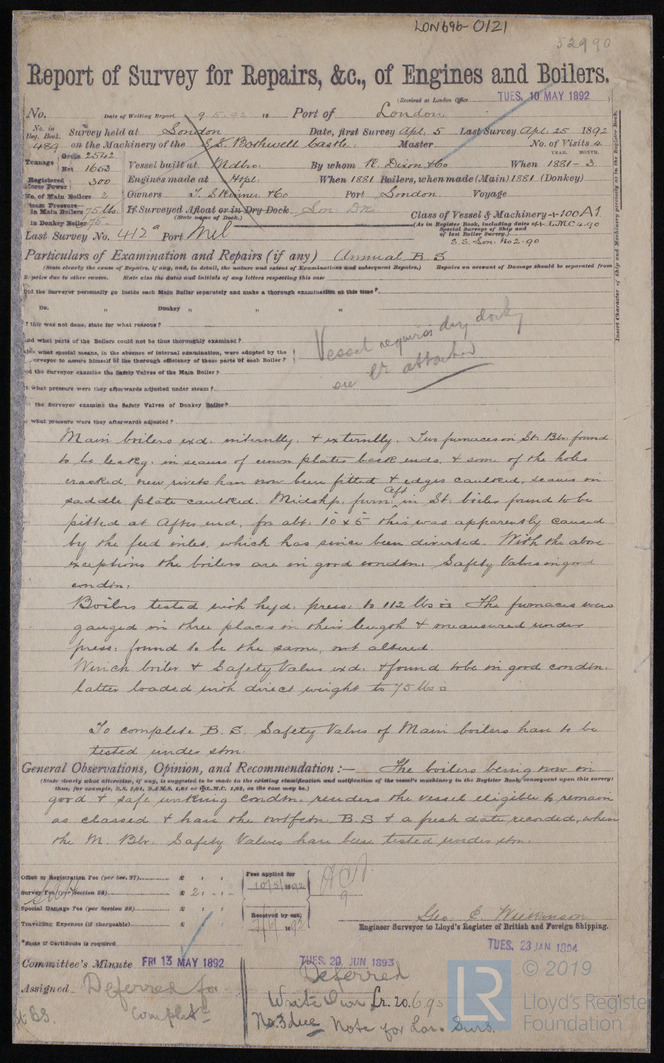 LON696-0121
52990
Report of Survey for Repairs, &c., of Engines and Boilers.
(Received at London Office TUES. 10 MAY 1892
No. Date of Writing Report 9.5.92 18 Port of London
No. in Reg. Book. Survey held at London Date, first Survey Apl. 5 Last Survey Apl. 25 1892
489 on the Machinery of the S.S. Bothwell Castle. Master No. of Visits 4
Tonnage Gross 2542 YEAR. MONTH.
Net 1653 Vessel built at Mdbro. By whom R. Dixon & Co When 1881 - 3
Registered Horse Power 300 Engines made at Htpl. When 1881 Boilers, when made (Main) 1881 (Donkey)
No. of Main Boilers 2 Owners T. Skinner & Co Port London Voyage
Steam Pressure in Main Boilers 75 lbs. If Surveyed Afloat or in Dry Dock Lon. Dks
in Donkey Boiler 75 (State name of Dock.) Class of Vessel & Machinery +100A1
(As in Register Book, including dates of Special Surveys of Ship and of last Boiler Survey.) L.M.C 4.90
Last Survey No. 412a Port Mel S.S. Lon. No 2-90
Particulars of Examination and Repairs (if any) Annual B.S
(State clearly the cause of Repairs, if any, and, in detail, the nature and extent of Examinations and subsequent Repairs.) Repairs on account of Damage should be separated from
Repairs due to other causes. State also the dates and initials of any letters respecting this case
Did the Surveyor personally go inside each Main Boiler separately and make a thorough examination at this time?
Do. " Donkey " " "
If this was not done, state for what reasons?
And what parts of the Boilers could not be thus thoroughly examined?
Vessel requires dry dock
What special means, in the absence of internal examination, were adopted by the
Surveyor to assure himself of the thorough efficiency of those parts of each Boiler?
see Lr attached
Did the Surveyor examine the Safety Valves of the Main Boiler?
To what pressure were they afterwards adjusted under steam?
Did the Surveyor examine the Safety Valves of Donkey Boiler?
To what pressure were they afterwards adjusted?
Main boilers exd. internlly. & externlly. Two furnaces on St. Blr. found
to be leaky, in seams of crown plates back ends, & some of the holes
cracked, new rivets have now been fitted & edges caulked, seams on
saddle plate caulked. Midshp. furn: aft in St. boiler found to be
pitted at After end, for abt. 10" x 5" this was apparently caused
by the feed inlet, which has since been diverted. With the above
exceptions the boilers are in good condtn. Safety Valves in good
condtn.
Boilers tested with hyd. press. to 112 lbs □" The furnaces were
gauged in three places in their length & measured under
press: found to be the same, not altered.
Winch boiler & Safety Valves exd. & found to be in good condtn.
latter loaded with direct weight to 75 lbs □
To complete B.S. Safety Valves of Main boilers have to be
tested under stm.
General Observations, Opinion, and Recommendation:— The boilers being now in
(State clearly what alteration, if any, is suggested to be made in the existing classification and notification of the vessel's machinery in the Register Book, consequent upon this survey;
good & safe working condtn. renders the vessel eligible to remain
as classed & have the notfctn. B.S & a fresh date recorded, when
the M. Blr. Safety Valves have been tested under stm.
Office or Registration Fee (per Sec. 27) £ : :
Survey Fee (per Section 28) £ 2 : :
Special Damage Fee (per Section 28) £ : :
Travelling Expenses (if chargeable) £ : :
Fees applied for
10/5/1892
Received by me,
Geo. E. Wilkinson
Engineer Surveyor to Lloyd's Register of British and Foreign Shipping.
*State if Certificate is required
TUES. 23 JAN 1894
Committee's Minute FRI 13 MAY 1892 TUES. 20 JUN 1893
Assigned Deferred for
Complete
B.S.
Deferred
Write Own Lr. 20.6.93
No. 3 due Note for Lon. Survs.
Insert Character of Ship and Machinery precisely as in the Register Book.
LR © 2019
Lloyd's Register
Foundation